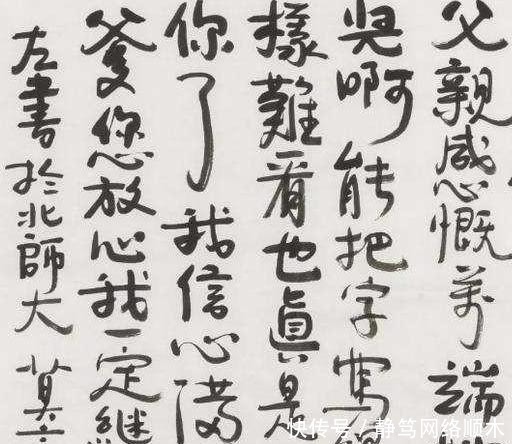 父親感慨萬端
兒啊能把字寫
樣難看也真是
你了我信心滿
爹您放心我一定繼
左書於北師大 莫
快传号/静笃网络顺木